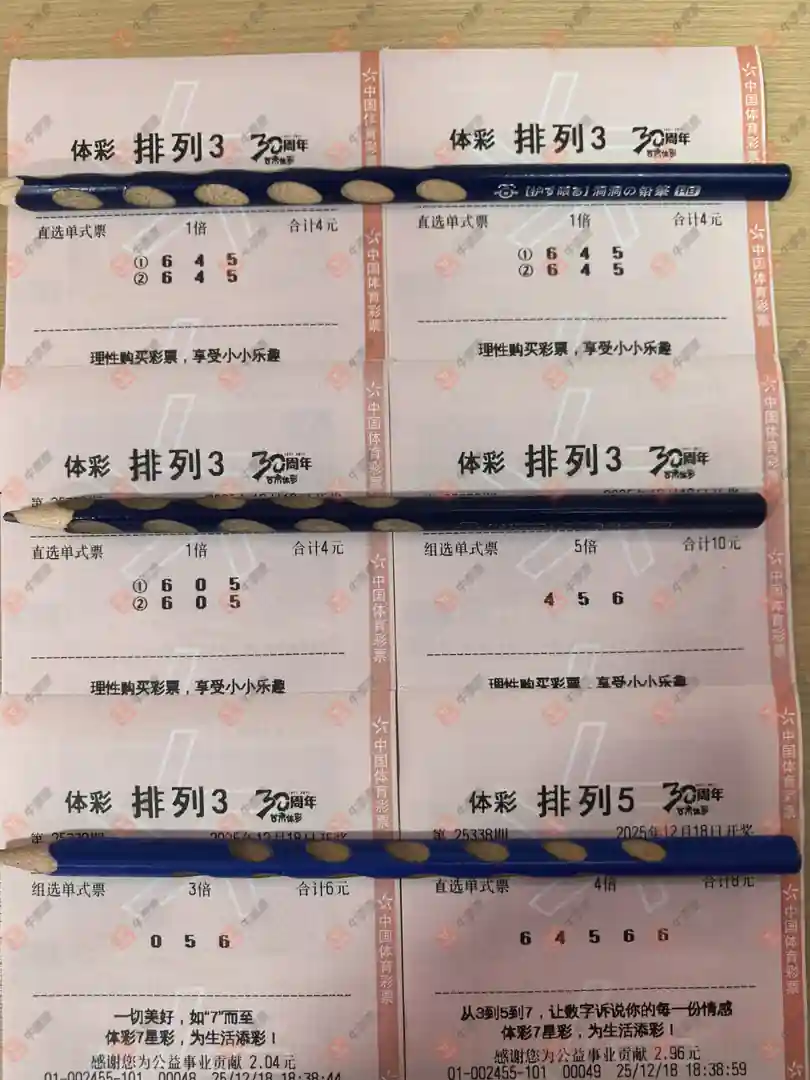 体彩 排列3 30周年
直选单式票 1倍 合计4元
① 6 4 5
② 6 4 5
理性购买彩票，享受小小乐趣
中国体育彩票
体彩 排列3 30周年
直选单式票 1倍 合计4元
① 6 4 5
② 6 4 5
理性购买彩票，享受小小乐趣
中国体育彩票
中国体育彩票
体彩 排列3 30周年
直选单式票 1倍 合计4元
① 6 0 5
② 6 0 5
理性购买彩票，享受小小乐趣
中国体育彩票
中国体育彩票
体彩 排列3 30周年
组选单式票 5倍 合计10元
4 5 6
理性购买彩票，享受小小乐趣
中国体育彩票
中国体育彩票
体彩 排列3 30周年
2025年12月18日开奖
组选单式票 3倍 合计6元
0 5 6
一切美好，如“7”而至
体彩7星彩，为生活添彩！
感谢您为公益事业贡献 2.04元
01-002455-101 00048 25/12/18 18:38:44
中国体育彩票
中国体育彩票
体彩 排列5 30周年
第 25338期 2025年12月18日开奖
直选单式票 4倍 合计8元
6 4 5 6 6
从3到5到7，让数字诉说你的每一份情感
体彩7星彩，为生活添彩！
感谢您为公益事业贡献 2.96元
01-002455-101 00049 25/12/18 18:38:59
中国体育彩票
中国体育彩票